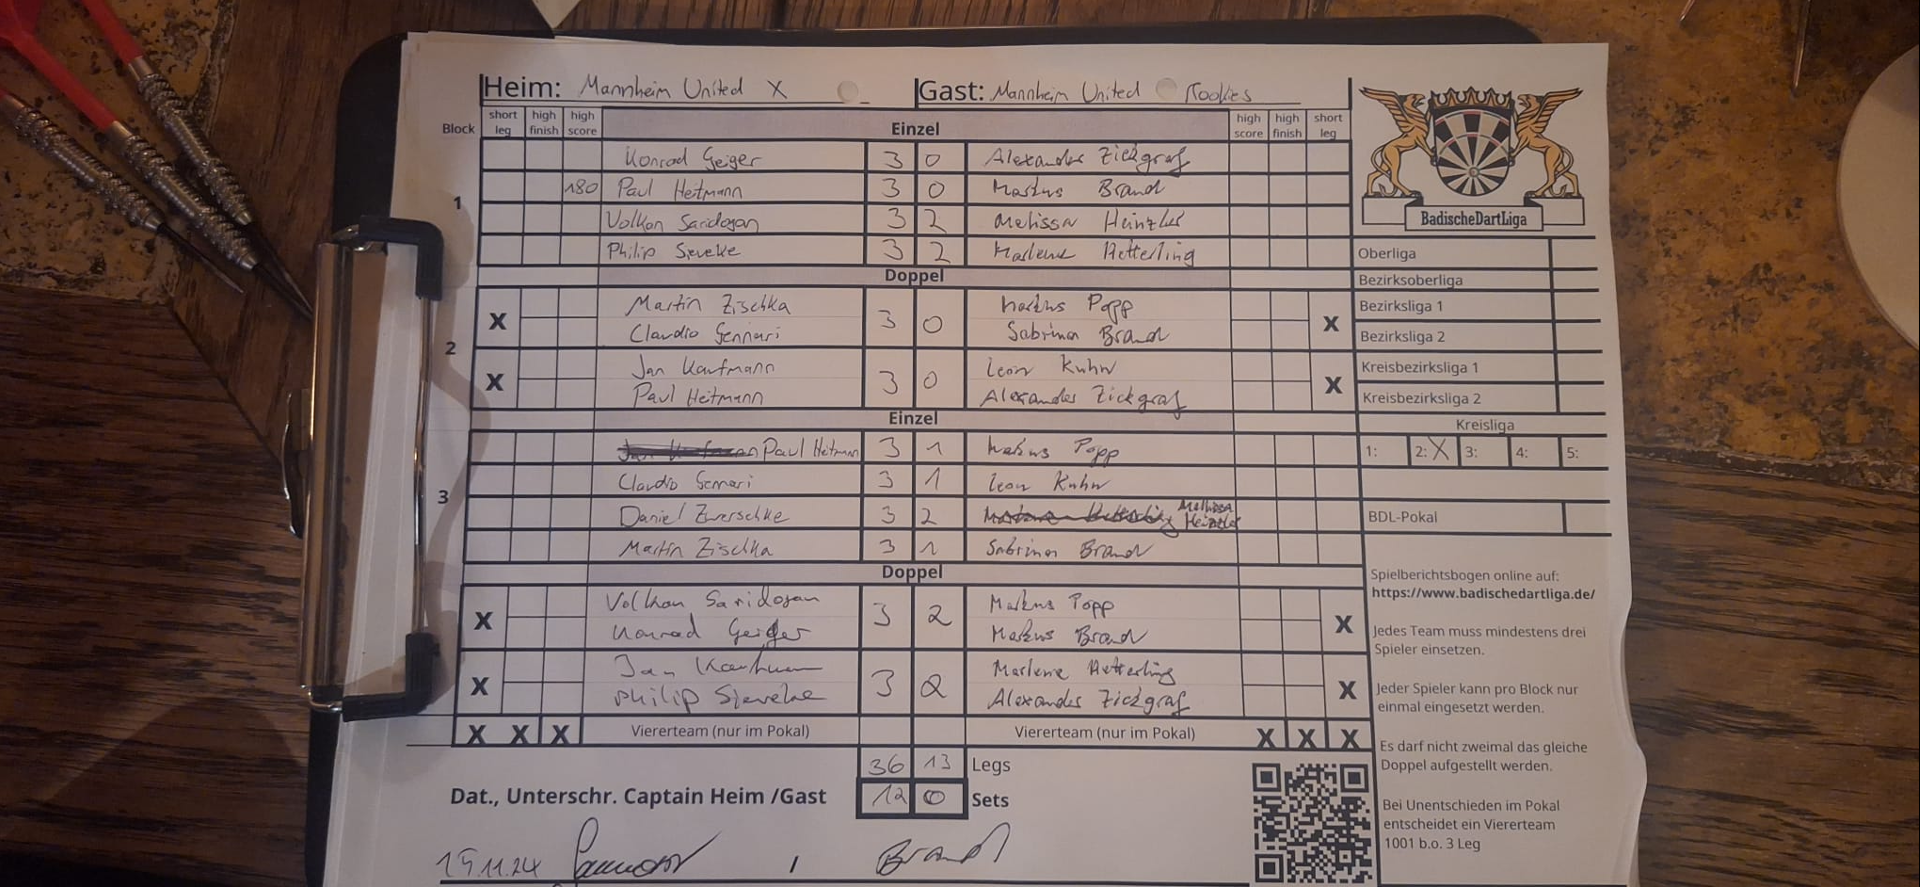 Heim: Mannheim United X Gast: Mannheim United Rookies
Block short leg high finish high score Einzel high score high finish short leg
1
Konrad Geiger 3 0 Alexander Zickgraf
180 Paul Heitmann 3 0 Markus Brand
Volkan Saridogan 3 2 Melissa Heinzler
Philip Sieveke 3 2 Marlene Hetterling
Doppel
2
X Martin Zischka 3 0 Markus Popp X
Claudio Gennari Sabrina Brand
X Jan Kaufmann 3 0 Leon Kuhn X
Paul Heitmann Alexander Zickgraf
Einzel
3
Paul Heitmann 3 1 Markus Popp
Claudio Gennari 3 1 Leon Kuhn
Daniel Zwerschke 3 2 Melissa Heinzler
Martin Zischka 3 1 Sabrina Brand
Doppel
X Volkan Saridogan 3 2 Markus Popp X
Konrad Geiger Markus Brand
X Jan Kaufmann 3 2 Marlene Hetterling X
Philip Sieveke Alexander Zickgraf
X X X Viererteam (nur im Pokal) Viererteam (nur im Pokal) X X X
36 13 Legs
12 0 Sets
Dat., Unterschr. Captain Heim /Gast
19.11.24 / Brand
BadischeDartLiga
Oberliga
Bezirksoberliga
Bezirksliga 1
Bezirksliga 2
Kreisbezirksliga 1
Kreisbezirksliga 2
Kreisliga
1: 2: X 3: 4: 5:
BDL-Pokal
Spielberichtsbogen online auf:
https://www.badischedartliga.de/
Jedes Team muss mindestens drei
Spieler einsetzen.
Jeder Spieler kann pro Block nur
einmal eingesetzt werden.
Es darf nicht zweimal das gleiche
Doppel aufgestellt werden.
Bei Unentschieden im Pokal
entscheidet ein Viererteam
1001 b.o. 3 Leg